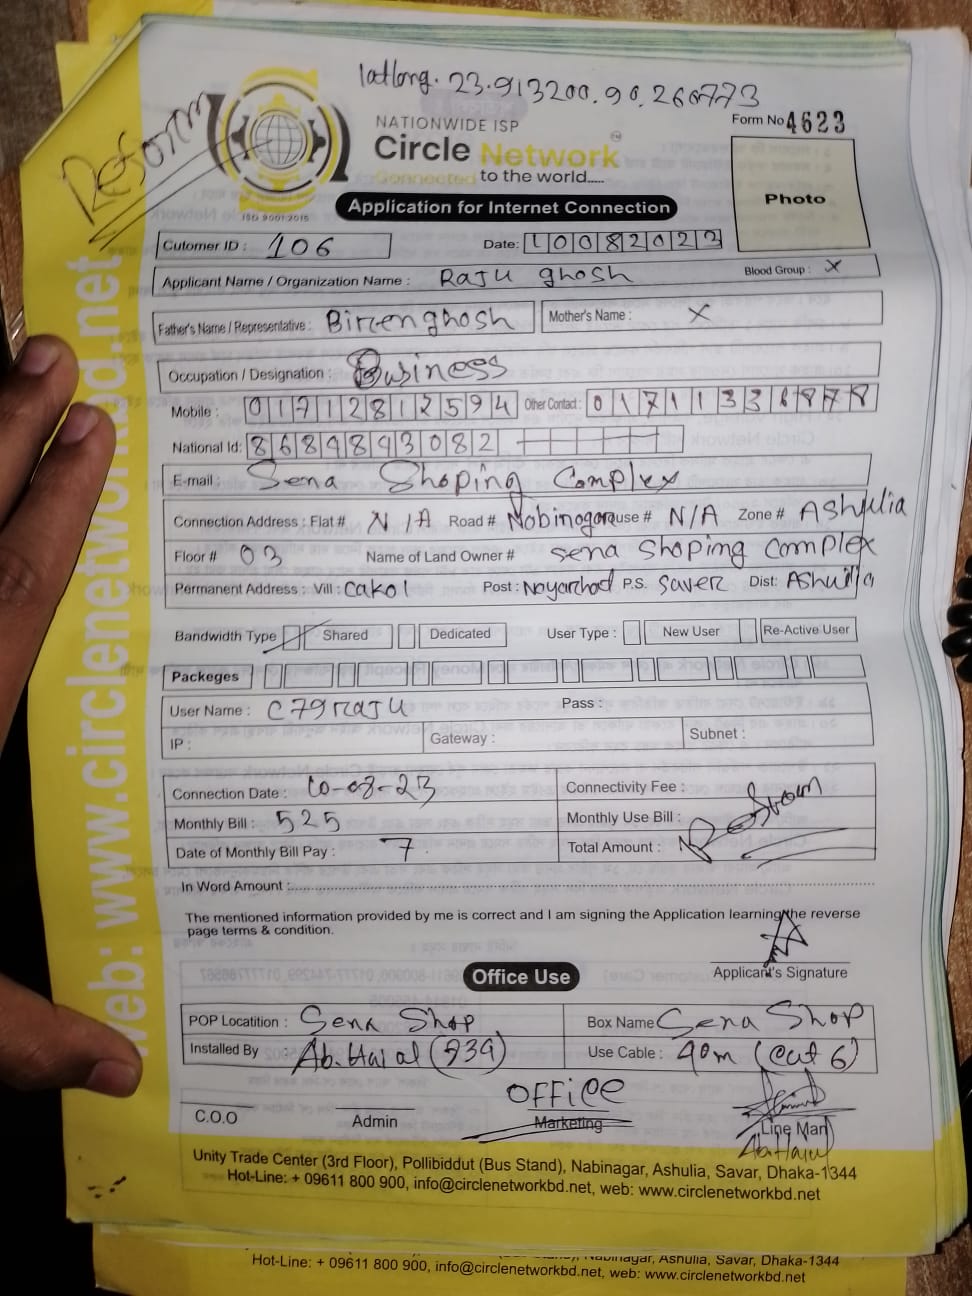 latlong. 23.913200.90.260773
Reform
NATIONWIDE ISP
Circle Network
Connected to the world.....
ISO 9001:2015
Form No 4623
Photo
Application for Internet Connection
Cutomer ID : 106
Date: 10082023
Applicant Name / Organization Name : Raju ghosh
Blood Group : X
Father's Name / Representative : Birenghosh
Mother's Name : X
Occupation / Designation : Business
Mobile : 01712812594 Other Contact : 01711336878
National Id: 8689893082
E-mail : Sena Shoping Complex
Connection Address : Flat # N/A Road # Nobinogor ouse # N/A Zone # Ashulia
Floor # 03 Name of Land Owner # sena shoping complex
Permanent Address : Vill : cakol Post : Noyarhad P.S. Saver Dist: Ashulia
Bandwidth Type Shared Dedicated User Type : New User Re-Active User
Packeges
User Name : c79raju Pass :
IP : Gateway : Subnet :
Connection Date : 10-08-23 Connectivity Fee :
Monthly Bill : 525 Monthly Use Bill :
Date of Monthly Bill Pay : 7 Total Amount :
In Word Amount :
The mentioned information provided by me is correct and I am signing the Application learning the reverse
page terms & condition.
Applicant's Signature
Office Use
POP Locatition : Sena Shop Box Name Sena Shop
Installed By : Ab. Halal (939) Use Cable : 90m (cat 6)
OFFicе
C.O.O Admin Marketing Line Man
Ab.Halal
Unity Trade Center (3rd Floor), Pollibiddut (Bus Stand), Nabinagar, Ashulia, Savar, Dhaka-1344
Hot-Line: + 09611 800 900, info@circlenetworkbd.net, web: www.circlenetworkbd.net
Nabinagar, Ashulia, Savar, Dhaka-1344
Hot-Line: + 09611 800 900, info@circlenetworkbd.net, web: www.circlenetworkbd.net
web: www.circlenetworkbd.net